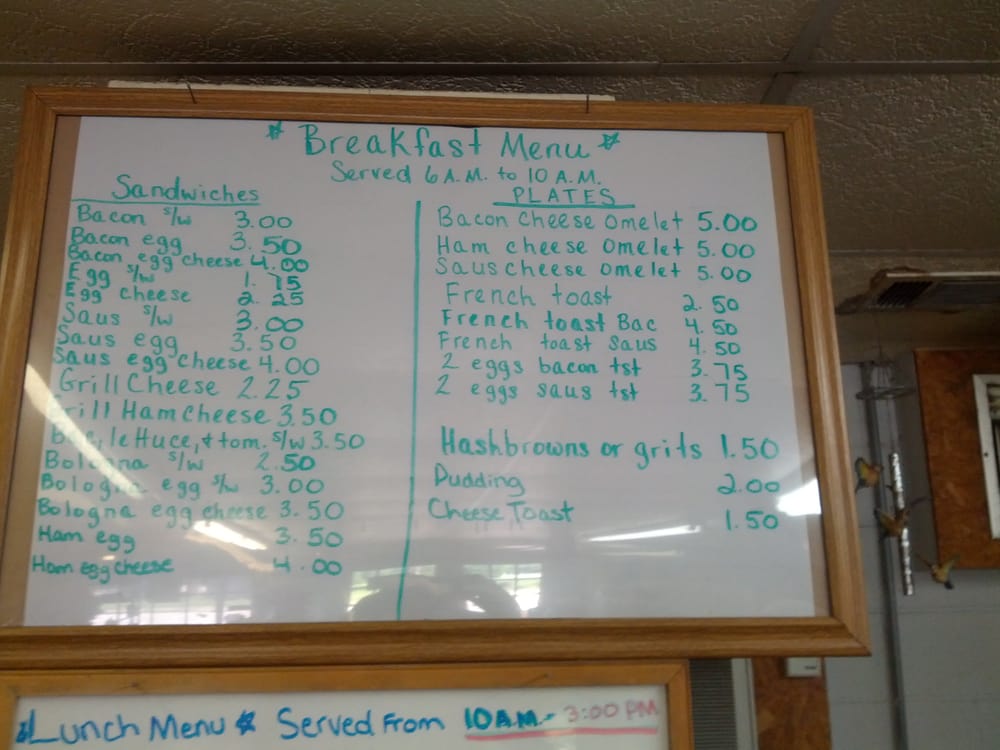 * Breakfast Menu *
Served 6 A.M. to 10 A.M.
Sandwiches
Bacon s/w 3.00
Bacon egg 3.50
Bacon egg cheese 4.00
Egg s/w 1.75
Egg cheese 2.25
Saus s/w 3.00
Saus egg 3.50
Saus egg cheese 4.00
Grill Cheese 2.25
Grill Ham cheese 3.50
Bac, lettuce, + tom. s/w 3.50
Bologna s/w 2.50
Bologna egg s/w 3.00
Bologna egg cheese 3.50
Ham egg 3.50
Ham egg cheese 4.00
PLATES
Bacon cheese omelet 5.00
Ham cheese omelet 5.00
Saus cheese omelet 5.00
French toast 2.50
French toast Bac 4.50
French toast saus 4.50
2 eggs bacon tst 3.75
2 eggs saus tst 3.75
Hashbrowns or grits 1.50
Pudding 2.00
Cheese Toast 1.50
Lunch Menu * Served From 10 A.M. - 3:00 PM